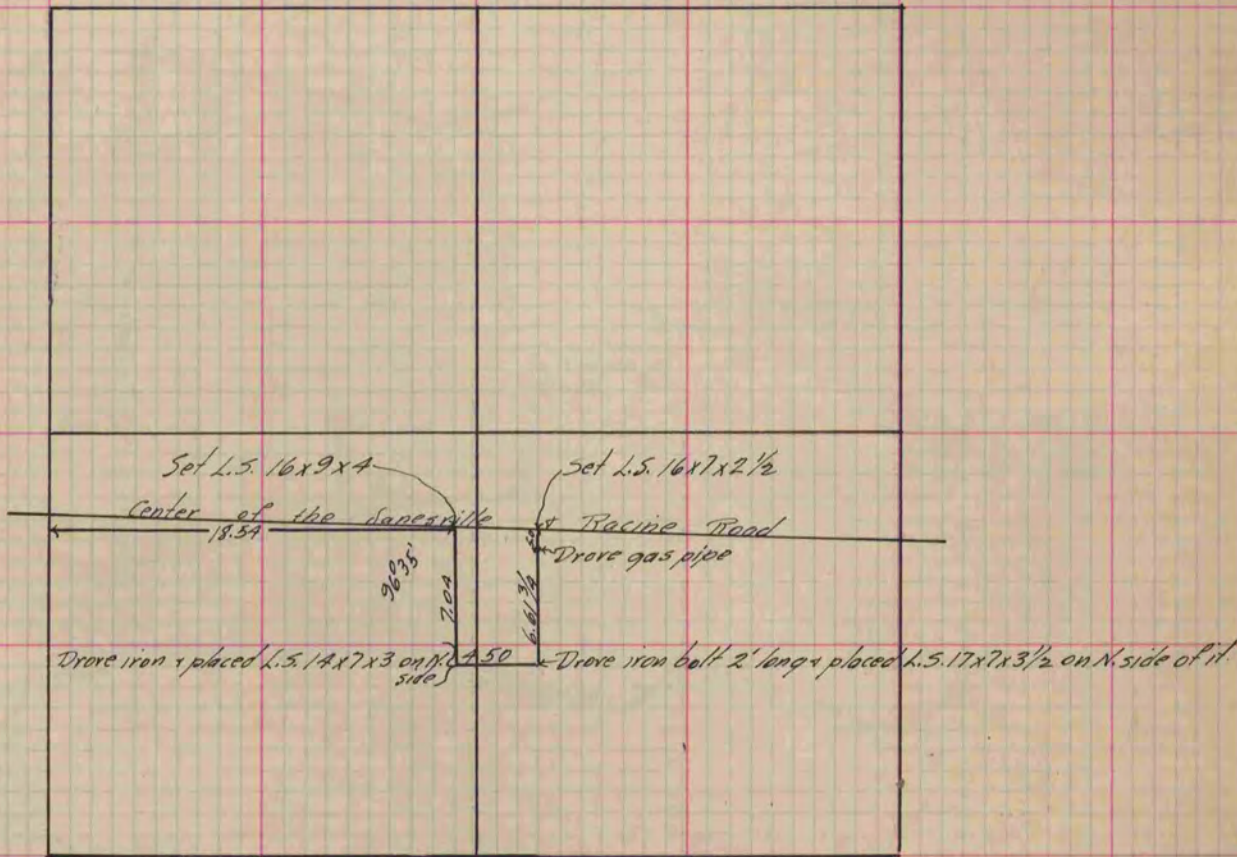 Set L.S. 16x9x4
Set L.S. 16x7x2½
Center of the Janesville & Racine Road
18.54
Drove gas pipe
96°35'
7.04
6.61¾
Drove iron & placed L.S. 14x7x3 on N. side
4.50
Drove iron bolt 2' long & placed L.S. 17x7x3½ on N. side of it.